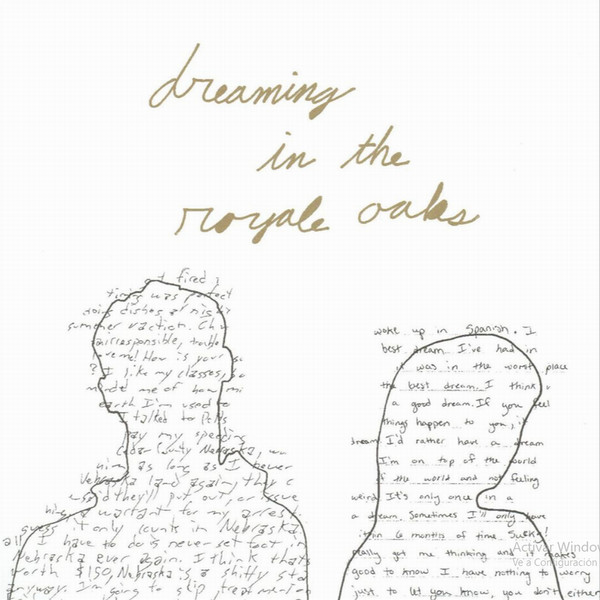 dreaming
in the
royale oaks
got fired ?
timing was perfect
doing dishes at night
summer vacation.
irresponsible,
me! How is your
? I like my classes, so
me of how mi
earth I'm used to
I talked to
pay my speeding
Cedar County Nebraska,
him as long as I never
Nebraska land again. they
said they'll put out, or issue
a warrant for my arrest.
guess it only counts in Nebraska
all I have to do is never set foot in
Nebraska ever again. I think that's
worth $150, Nebraska is a shitty st
anyway. I'm going to
woke up in Spanish. I
best dream I've had in
it was in the worst place
the best dream. I think
a good dream. If you feel
things happen to you, i
dream. I'd rather have a dream
I'm on top of the world
of the world and not feeling
weird. It's only once in a
a dream. Sometimes I'll only have
it on 6 months of time. Sucks!
really got me thinking and it makes
good to know I have nothing to worry
just to let you know, you don't either
Activar Window
Ve a Configuración